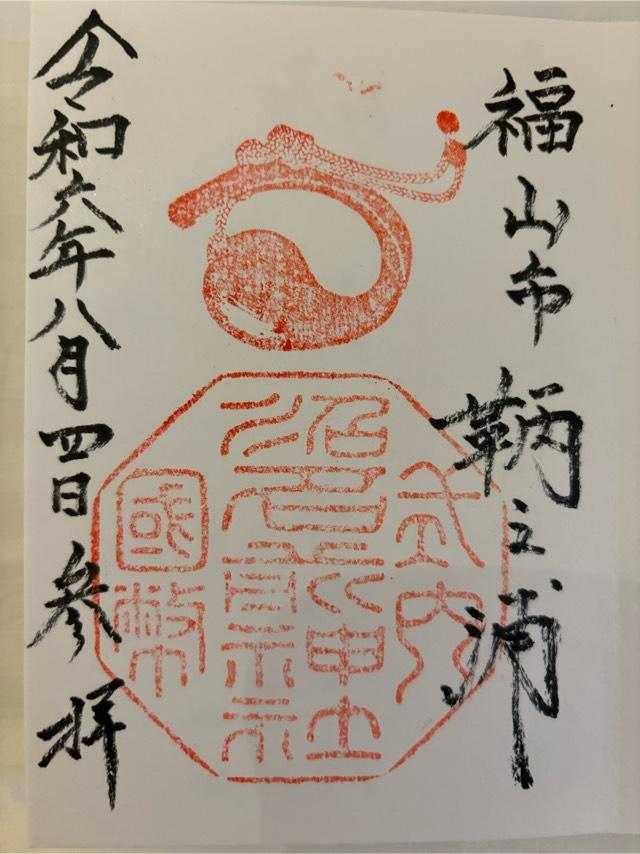 福山市 鞆之浦
式内
沼名前神社
國幣
令和六年八月四日参拝